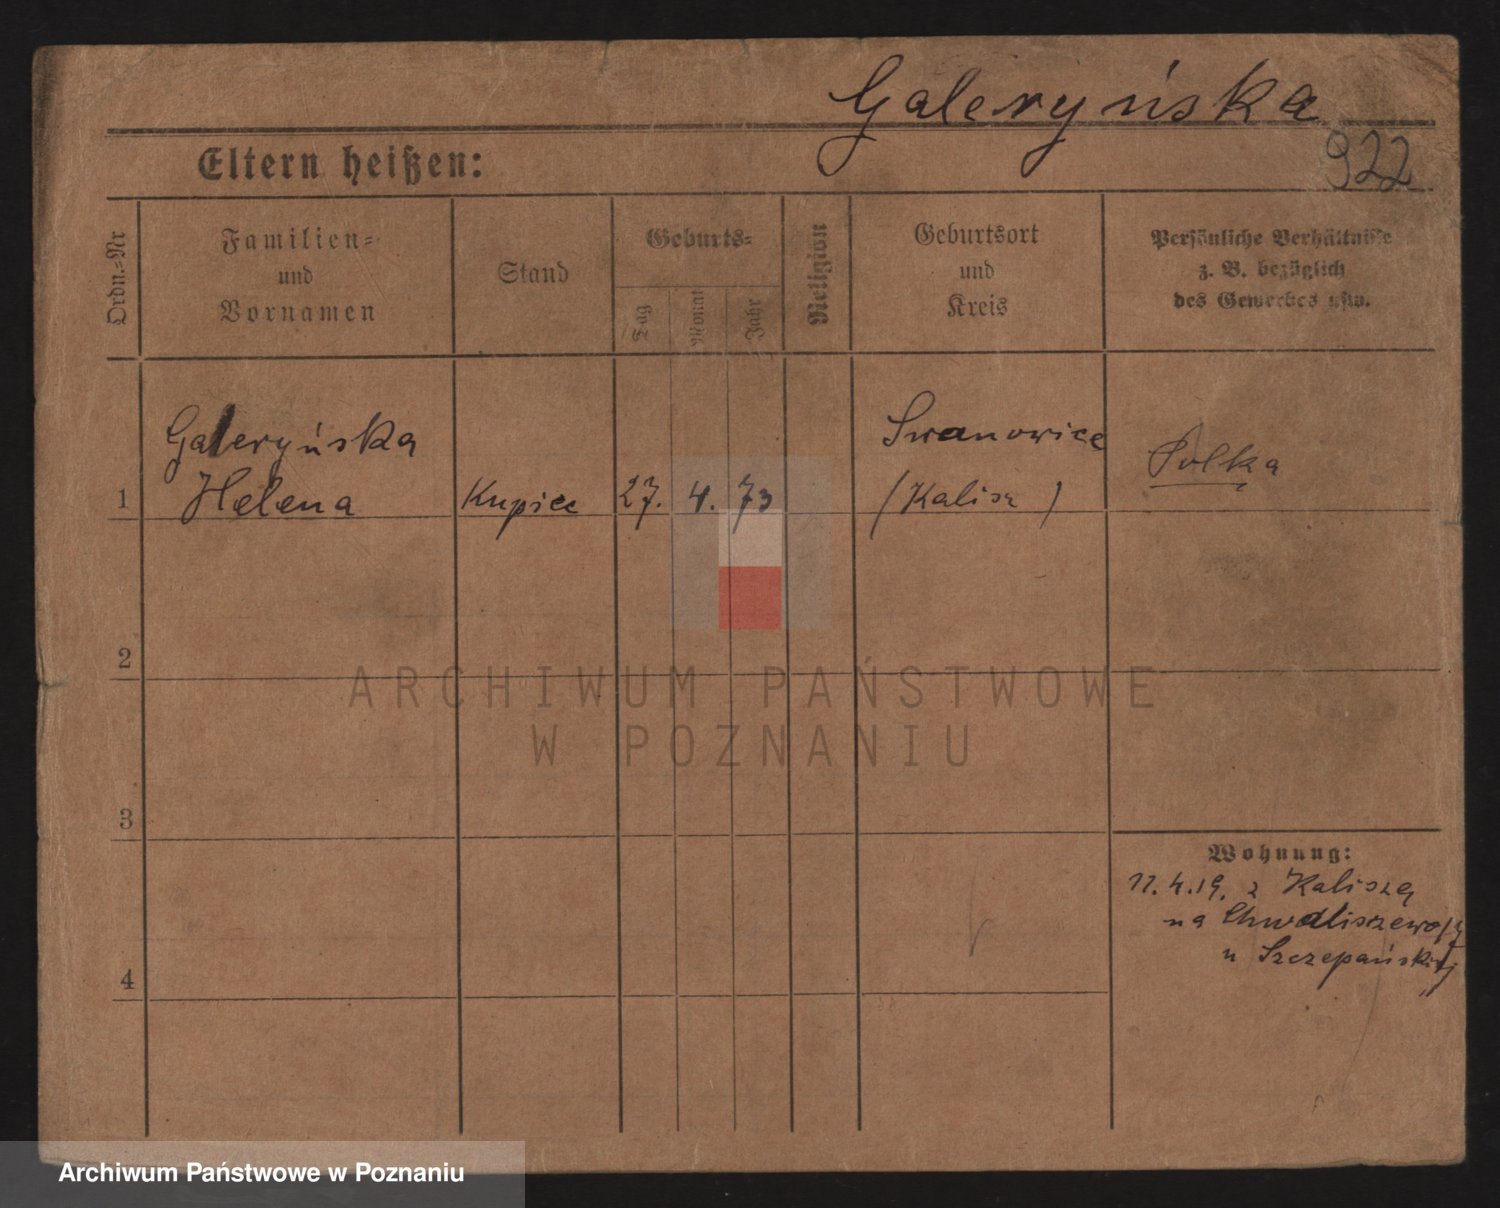 Galeryńska
922
Eltern heißen:
Ordn.-Nr
Familien- und Vornamen
Stand
Geburts-
Tag
Monat
Jahr
Religion
Geburtsort und Kreis
Persönliche Verhältnisse z. B. bezüglich des Gewerbes usw.
Galeryńska
Helena
1
Kupiec
27. 4. 73
Iwanowice
(Kalisz)
Polka
2
3
4
Wohnung:
11.4.19. z Kalisza
na Chwaliszewo
u Szczepańskiej
ARCHIWUM PAŃSTWOWE
W POZNANIU
Archiwum Państwowe w Poznaniu